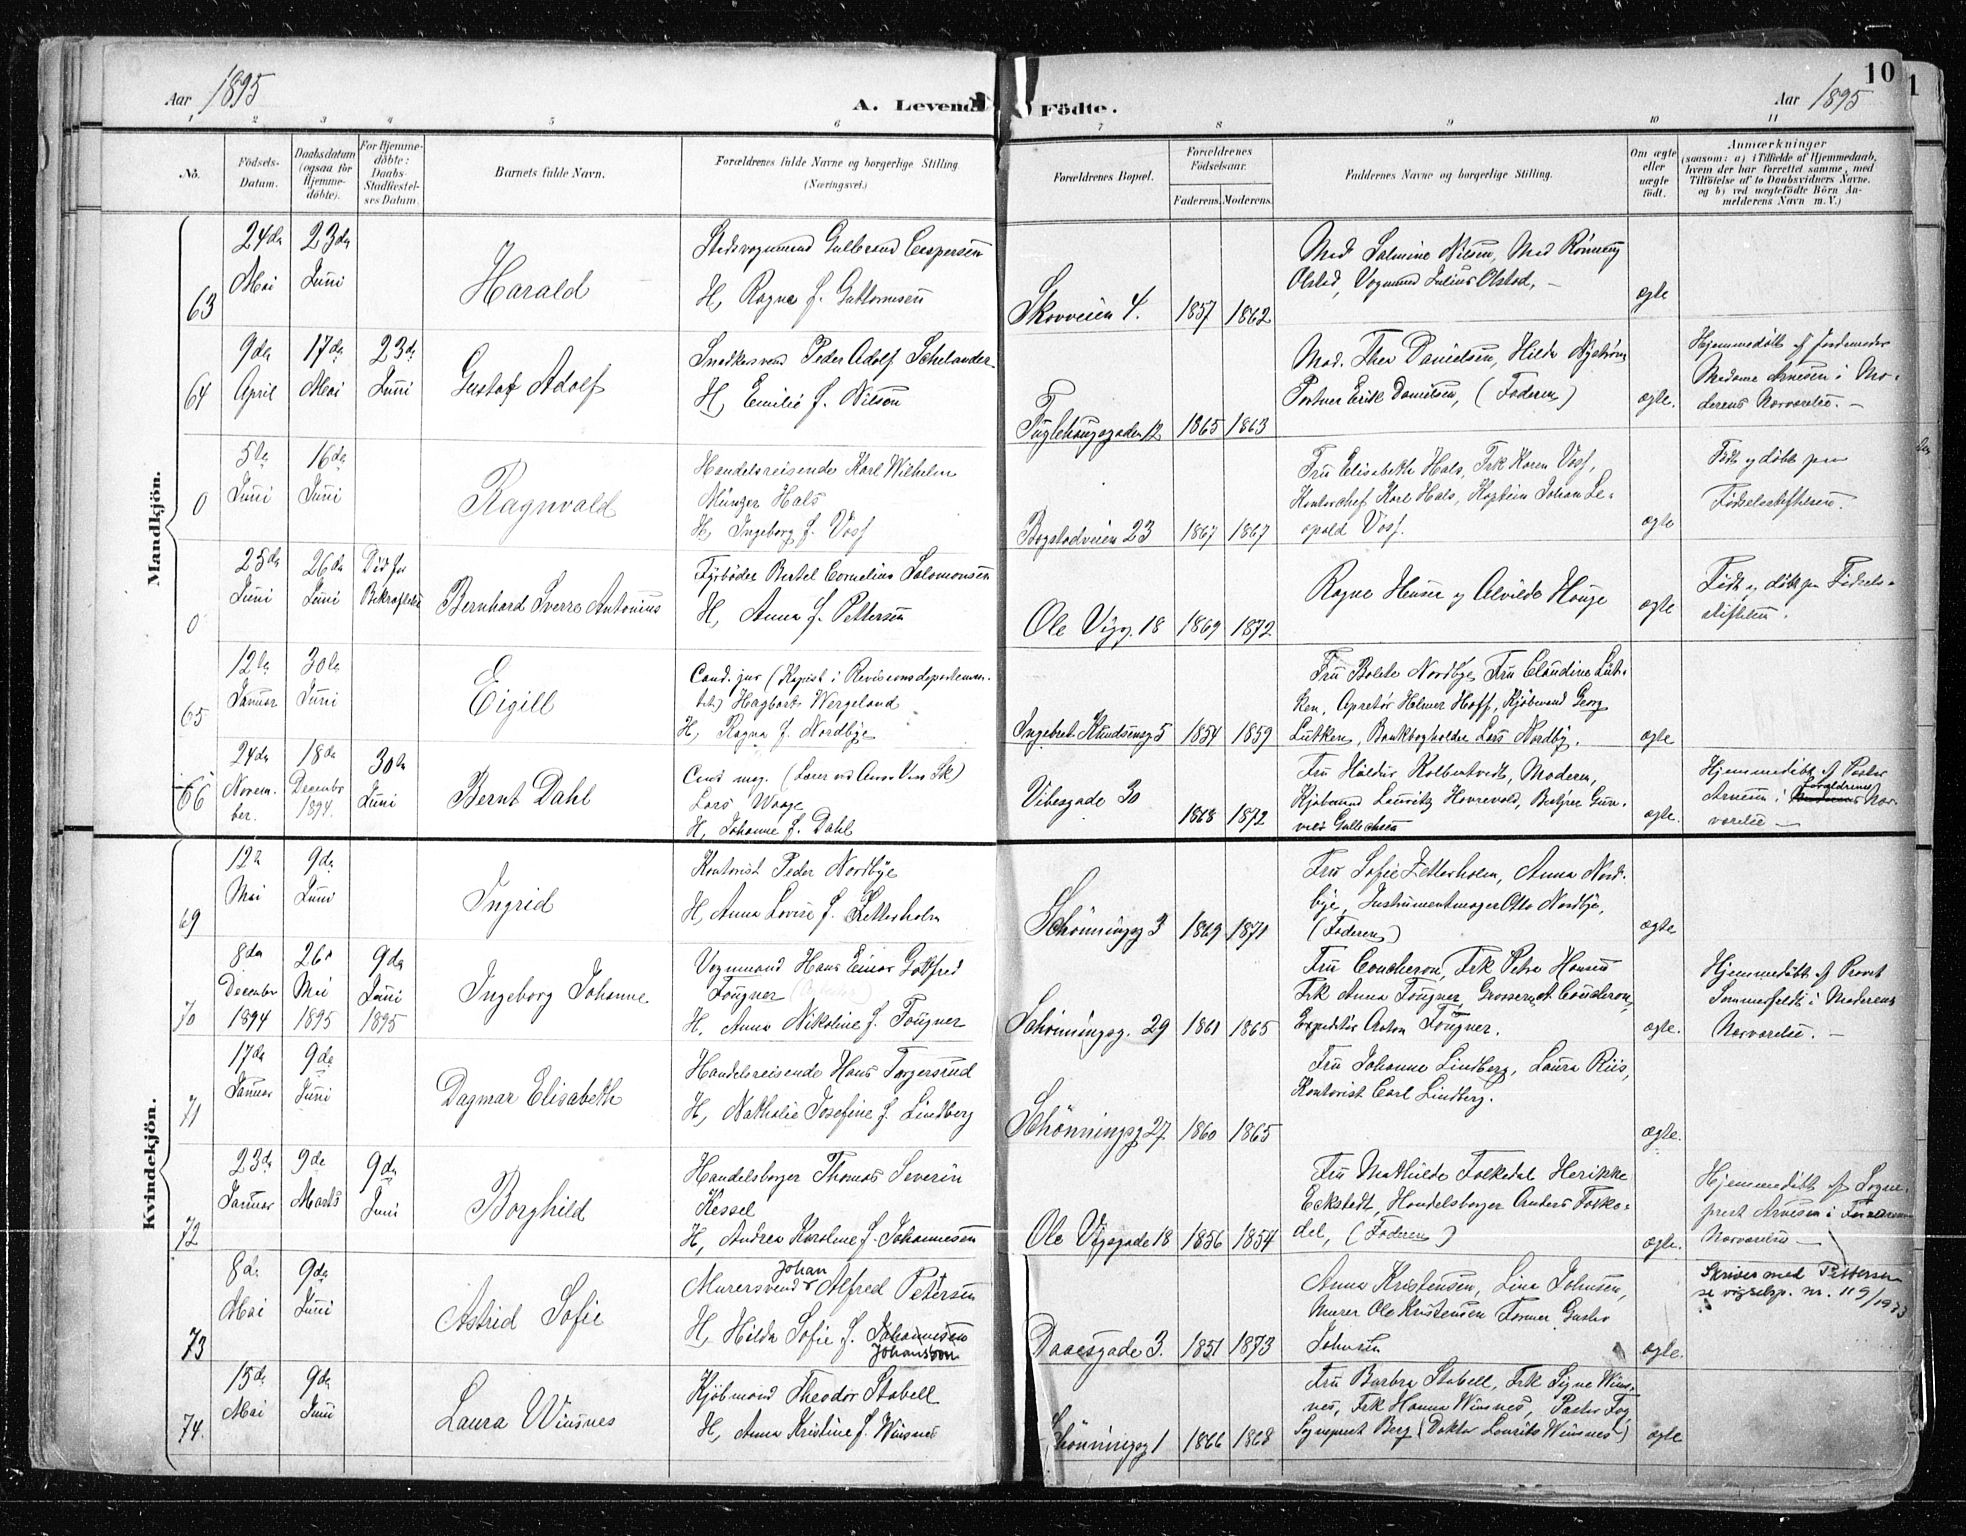 10
Aar 1895
A. Levende Födte.
Aar 1895
1 2 3 4 5 6 7 8 9 10 11
No.
Födsels-Datum.
Daabsdatum (ogsaa for Hjemme-døbte).
For Hjemme-døbte: Daabs Stadfæstel-ses Datum.
Barnets fulde Navn.
Forældrenes fulde Navne og borgerlige Stilling (Næringsvei.)
Forældrenes Bopæl.
Forældrenes Födselsaar.
Faderens. Moderens.
Faddernes Navne og borgerlige Stilling.
Om ægte eller uægte født.
Anmærkninger
(saasom: a) i Tilfælde af Hjemmedaab, hvem der har forrettet samme, med Tilföielse af to Daabsvidners Navne, og b) ved uægtefödte Börn Anmelderens Navn m. V.)
Mandkjön.
63
24de Mai
23de Juni
Harald
Gulbrand Caspersen
H, Ragna f. Guttormsen
Skovveien 4.
1857 1862
Mad Salmine Nilsen, Mad
Olstad, Vognmand Julius Olstad, –
ægte
64
9de April
17de Mai
23de Juni
Gustaf Adolf
Snedkersvend Peder Adolf Schelander
H, Emilie f. Nilsen
Fuglehaugsgaden 12
1865 1863
Mad. Thea Danielsen, Hilda Nyström
Portner Erik Danielsen, (Faderen)
ægte.
Hjemmedöbt af Jordemoder
Madame Arnesen i Mo-
derens Nærværelse. –
0
5te Juni
16de Juni
Ragnvald
Handelsreisende Karl Wilhelm
Münger Hals
H, Ingeborg f. Voss
Bogstadveien 23
1867 1867
Fru Elisabeth Hals, Frk Karen Voss,
Kontorchef Karl Hals, Kaptein Johan Le-
opold Voss.
ægte
Födt og döbt paa
Födselsstiftelsen.
0
25de Juni
26de Juni
Död för Bekræftelsen
Bernhard Sverre Antonius
Fyrböder Bertel Cornelius Salomonsen
H, Anna f. Pettersen
Ole Vigg. 18
1869 1872
Ragna Hensen og Alvilde Hauge
ægte
Födt og döbt paa Födsels-
stiftelsen.
65
12te Januar
30te Juni
Eigill
Cand. jur (Kopist i Revisionsdepartemen-
tet) Hagbart Wergeland
H, Ragna f. Nordbye
Ingebret Knudsensg 5
1854 1859
Fru Bolette Nordbye Fru Claudine Lüt-
ken, Apretör Holmer Hoff, Kjöbmand Georg
Lütken, Bankbogholder Lars Nordby.
ægte
66
24de Novem-ber.
18de Decembr 1894.
30te Juni
Bernt Dahl
Cand mag. (Lærer ved Sk)
Lars Waage
H, Johanne f. Dahl
Vibesgade 20
1868 1872
Fru Haldur Kolbentvedt, Moderen,
Kjöbmand Lauritz Hovrevold, Bestyrer
ægte.
Hjemmedöbt af Pastor
Arnesen i Forældrenes Nær-
værelse –
Kvindekjön.
69
12te Mai
9de Juni
Ingrid
Kontorist Peder Nordbye
H, Anna Lovise f. Zetterholm
Schönningsg 3
1869 1871
Fru Sofie Zetterholm, Anna Nord-
bye, Instrumentmager Otto Nordbye,
(Faderen)
ægte
70
8de December 1894
26de Mai 1895
9de Juni 1895
Ingeborg Johanne
Vognmand Hans Einar Gotfred
Fougner
H. Anna Nikoline f. Fougner
Schönningsg. 29
1861 1865
Fru Coucheron, Frk Petra Hansen
Frk Anna Fougner, Grosserer A. Coucheron,
Expeditör Anton Fougner.
ægte.
Hjemmedöbt af Provst
Sommerfeldt i Moderens
Nærværelse. –
71
17de Januar
9de Juni
Dagmar Elisabeth
Handelsreisende Hans Torgersrud
H, Nathalie Josefine f. Lindberg
Schönningsg 27
1860 1865
Fru Johanne Lindberg, Laura Riis,
Kontorist Carl Lindberg.
ægte.
72
23de Januar
9de Marts
9de Juni
Borghild
Handelsborger Thomas Severin
Kessel
H, Andrea Karoline f. Johannesen
Ole Vigsgade 18
1856 1854
Fru Mathilde Folkedal Henrikke
Eckstedt, Handelsborger Anders Folke-
dal, (Faderen)
ægte.
Hjemmedöbt af Sogne-
prest Arnesen i
Nærværelse –
73
8de Mai
9de Juni
Astrid Sofie
Murersvend Johan Alfred Petersen
H, Hilda Sofie f. Johannesen
Johanson
Daaesgade 3.
1851 1873
Anna Kristensen, Lina Johnsen,
Murer Ole Kristensen Former Gustav
Johnsen
ægte.
Skrives med Pettersen
se vigselsp. nr. 119/1933
74.
15de Mai
9de Juni
Laura Winsnes
Kjöbmand Theodor Stabell
H, Anna Kristine f. Winsnes
Schönningsg 1
1866 1868
Fru Barbra Stabell, Frk Signe Wins-
nes, Frk Hanna Winsnes, Pastor Fog
Sogneprest Berg (Doktor Laurits Winsnes)
ægte